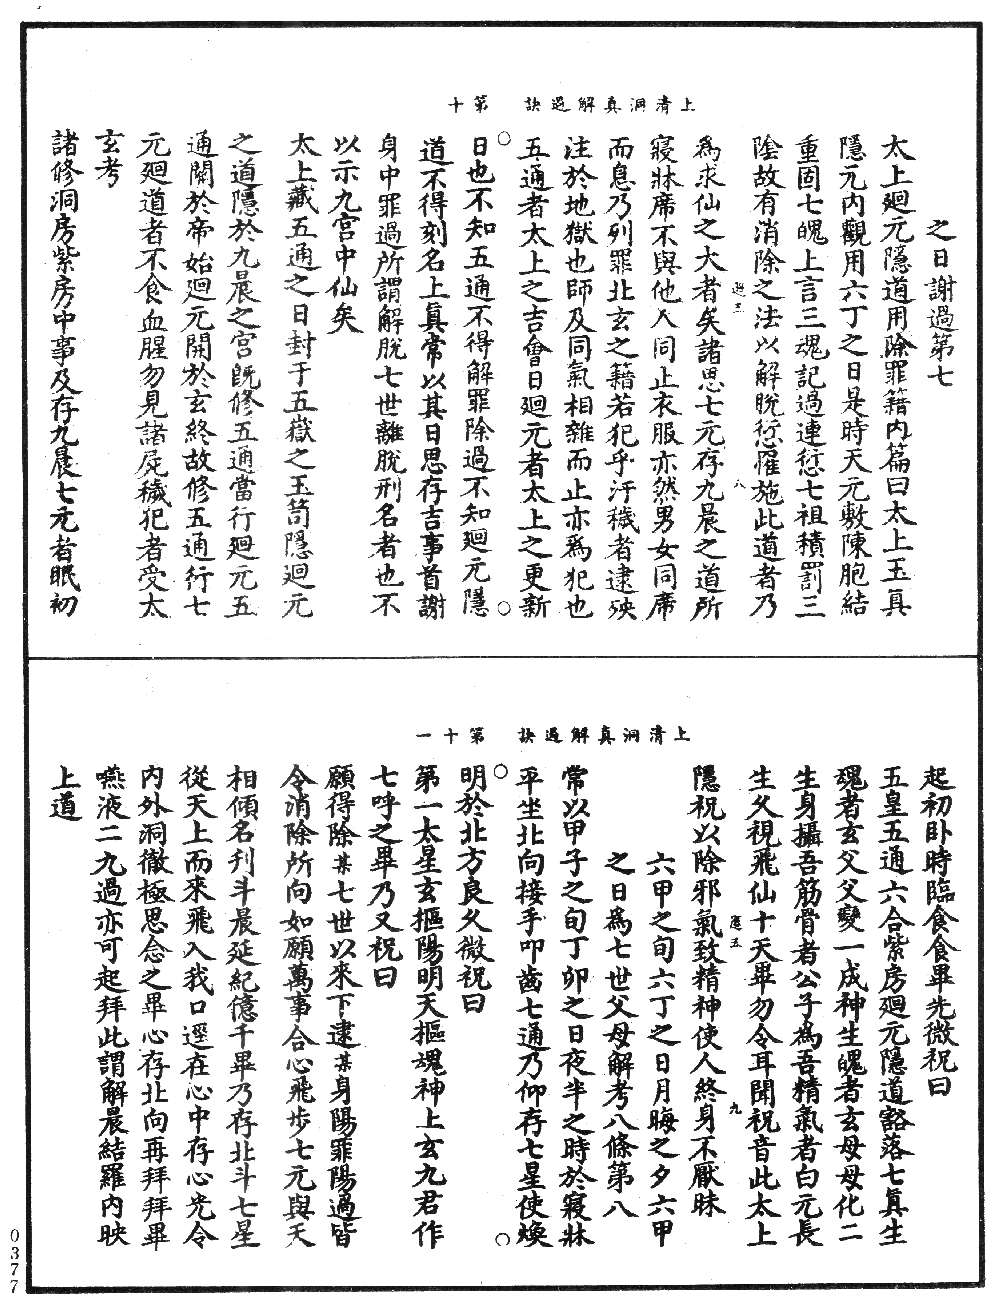 上清洞真解過訣　第十
之日謝過第七
太上廻元隱道用除罪籍內篇曰太上玉真
隱元內觀用六丁之日是時天元敷陳胞結
重固七魄上言三魂記過連愆七祖積罰三
陰故有消除之法以解脫愆罹施此道者乃
為求仙之大者矣諸思七元存九晨之道所
寢牀席不與他人同止衣服亦然男女同席
而息乃列罪北玄之籍若犯乎汙穢者逮殃
注於地獄也師及同氣相雜而止亦為犯也
五通者太上之吉會日廻元者太上之更新
日也不知五通不得解罪除過不知廻元隱
道不得刻名上真常以其日思存吉事首謝
身中罪過所謂解脫七世離脫刑名者也不
以示九宮中仙矣
太上藏五通之日封于五嶽之玉笥隱廻元
之道隱於九晨之宮旣修五通當行廻元五
通關於帝始廻元開於玄終故修五通行七
元廻道者不食血腥勿見諸屍穢犯者受太
玄考
諸修洞房紫房中事及存九晨七元者眠初
上清洞真解過訣　第十一
起初臥時臨食食畢先微祝曰
五皇五通六合紫房廻元隱道豁落七真生
魂者玄父父變一成神生魄者玄母母化二
生身攝吾筋骨者公子為吾精氣者白元長
生久視飛仙十天畢勿令耳聞祝音此太上
隱祝以除邪氣致精神使人終身不厭昧
六甲之旬六丁之日月晦之夕六甲
之日為七世父母解考八條第八
常以甲子之旬丁卯之日夜半之時於寢牀
平坐北向接手叩齒七通乃仰存七星使煥
明於北方良久微祝曰
第一太星玄摳陽明天摳魂神上玄九君作
七呼之畢乃又祝曰
願得除某七世以來下逮某身陽罪陽過皆
令消除所向如願萬事合心飛步七元與天
相傾名刋斗晨延紀億千畢乃存北斗七星
從天上而來飛入我口逕在心中存心光令
內外洞徹極思念之畢心存北向再拜拜畢
嚥液二九過亦可起拜此謂解晨結羅內映
上道
0377